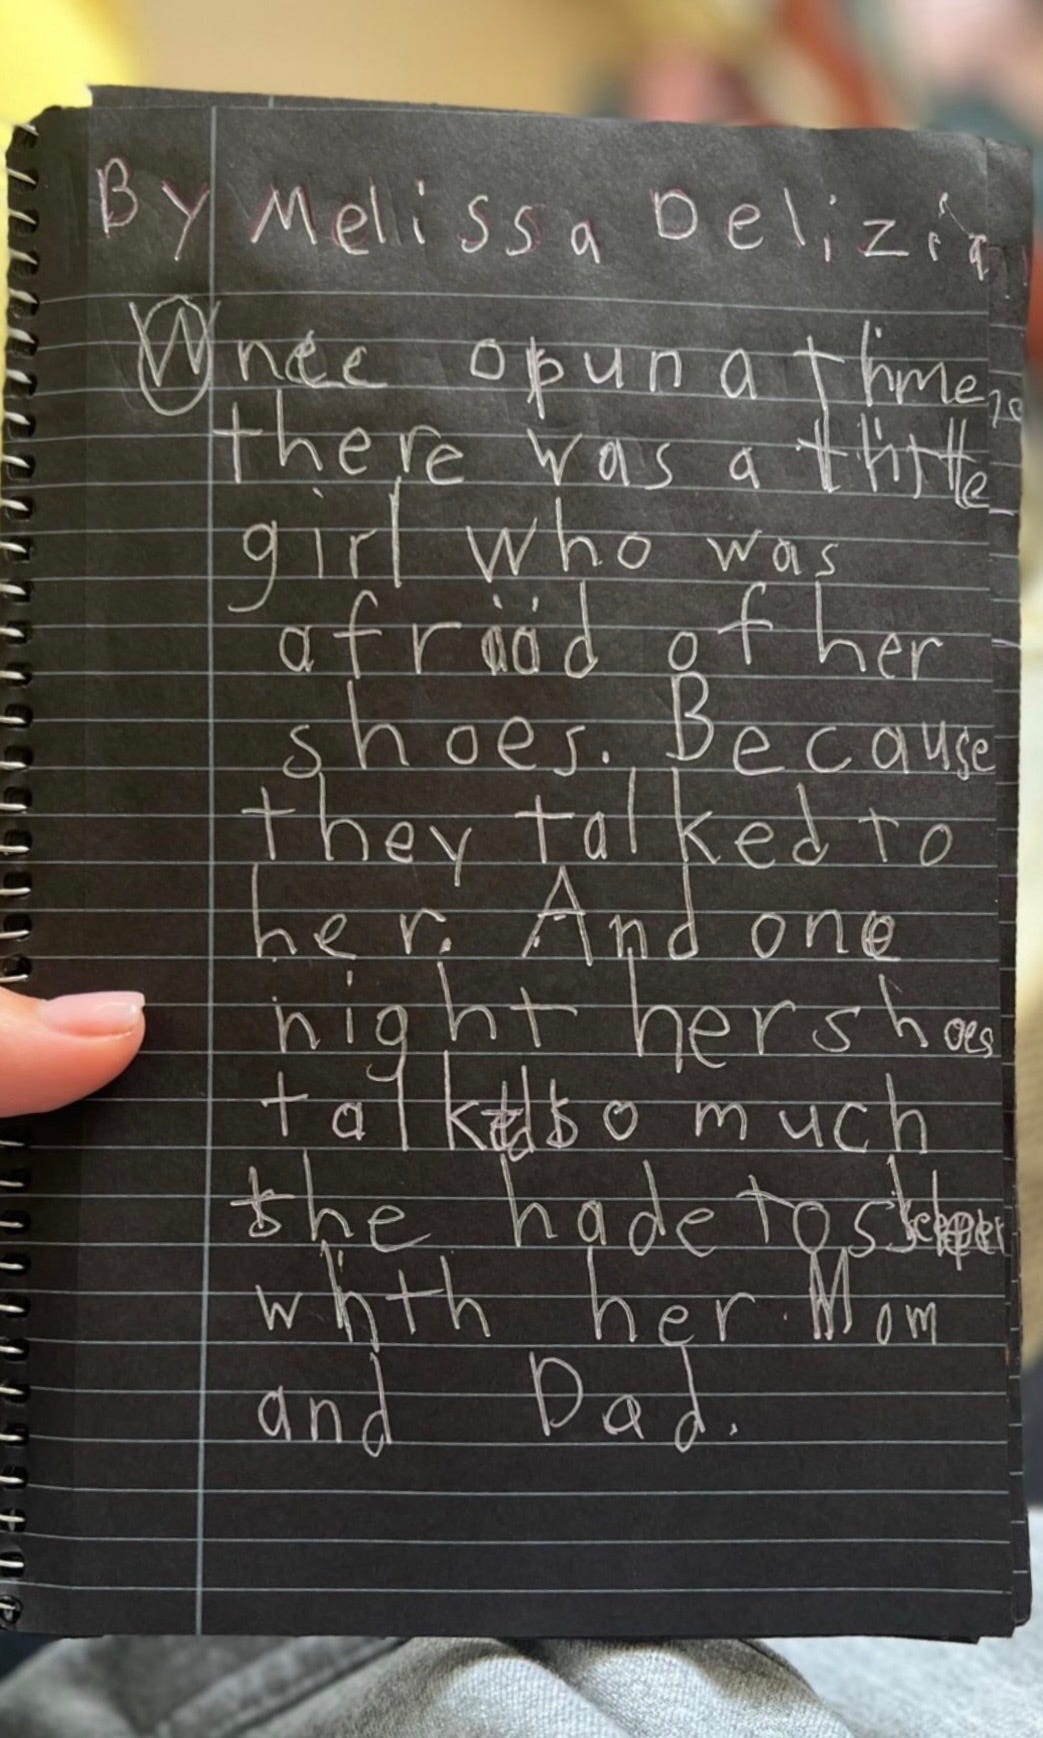 By Melissa Delizia
Wnce opun a thme
there was a thttle
girl who was
afraid of her
shoes. Because
they talked to
her. And one
night her shoes
talked so much
she hade to
whth her Mom
and Dad.